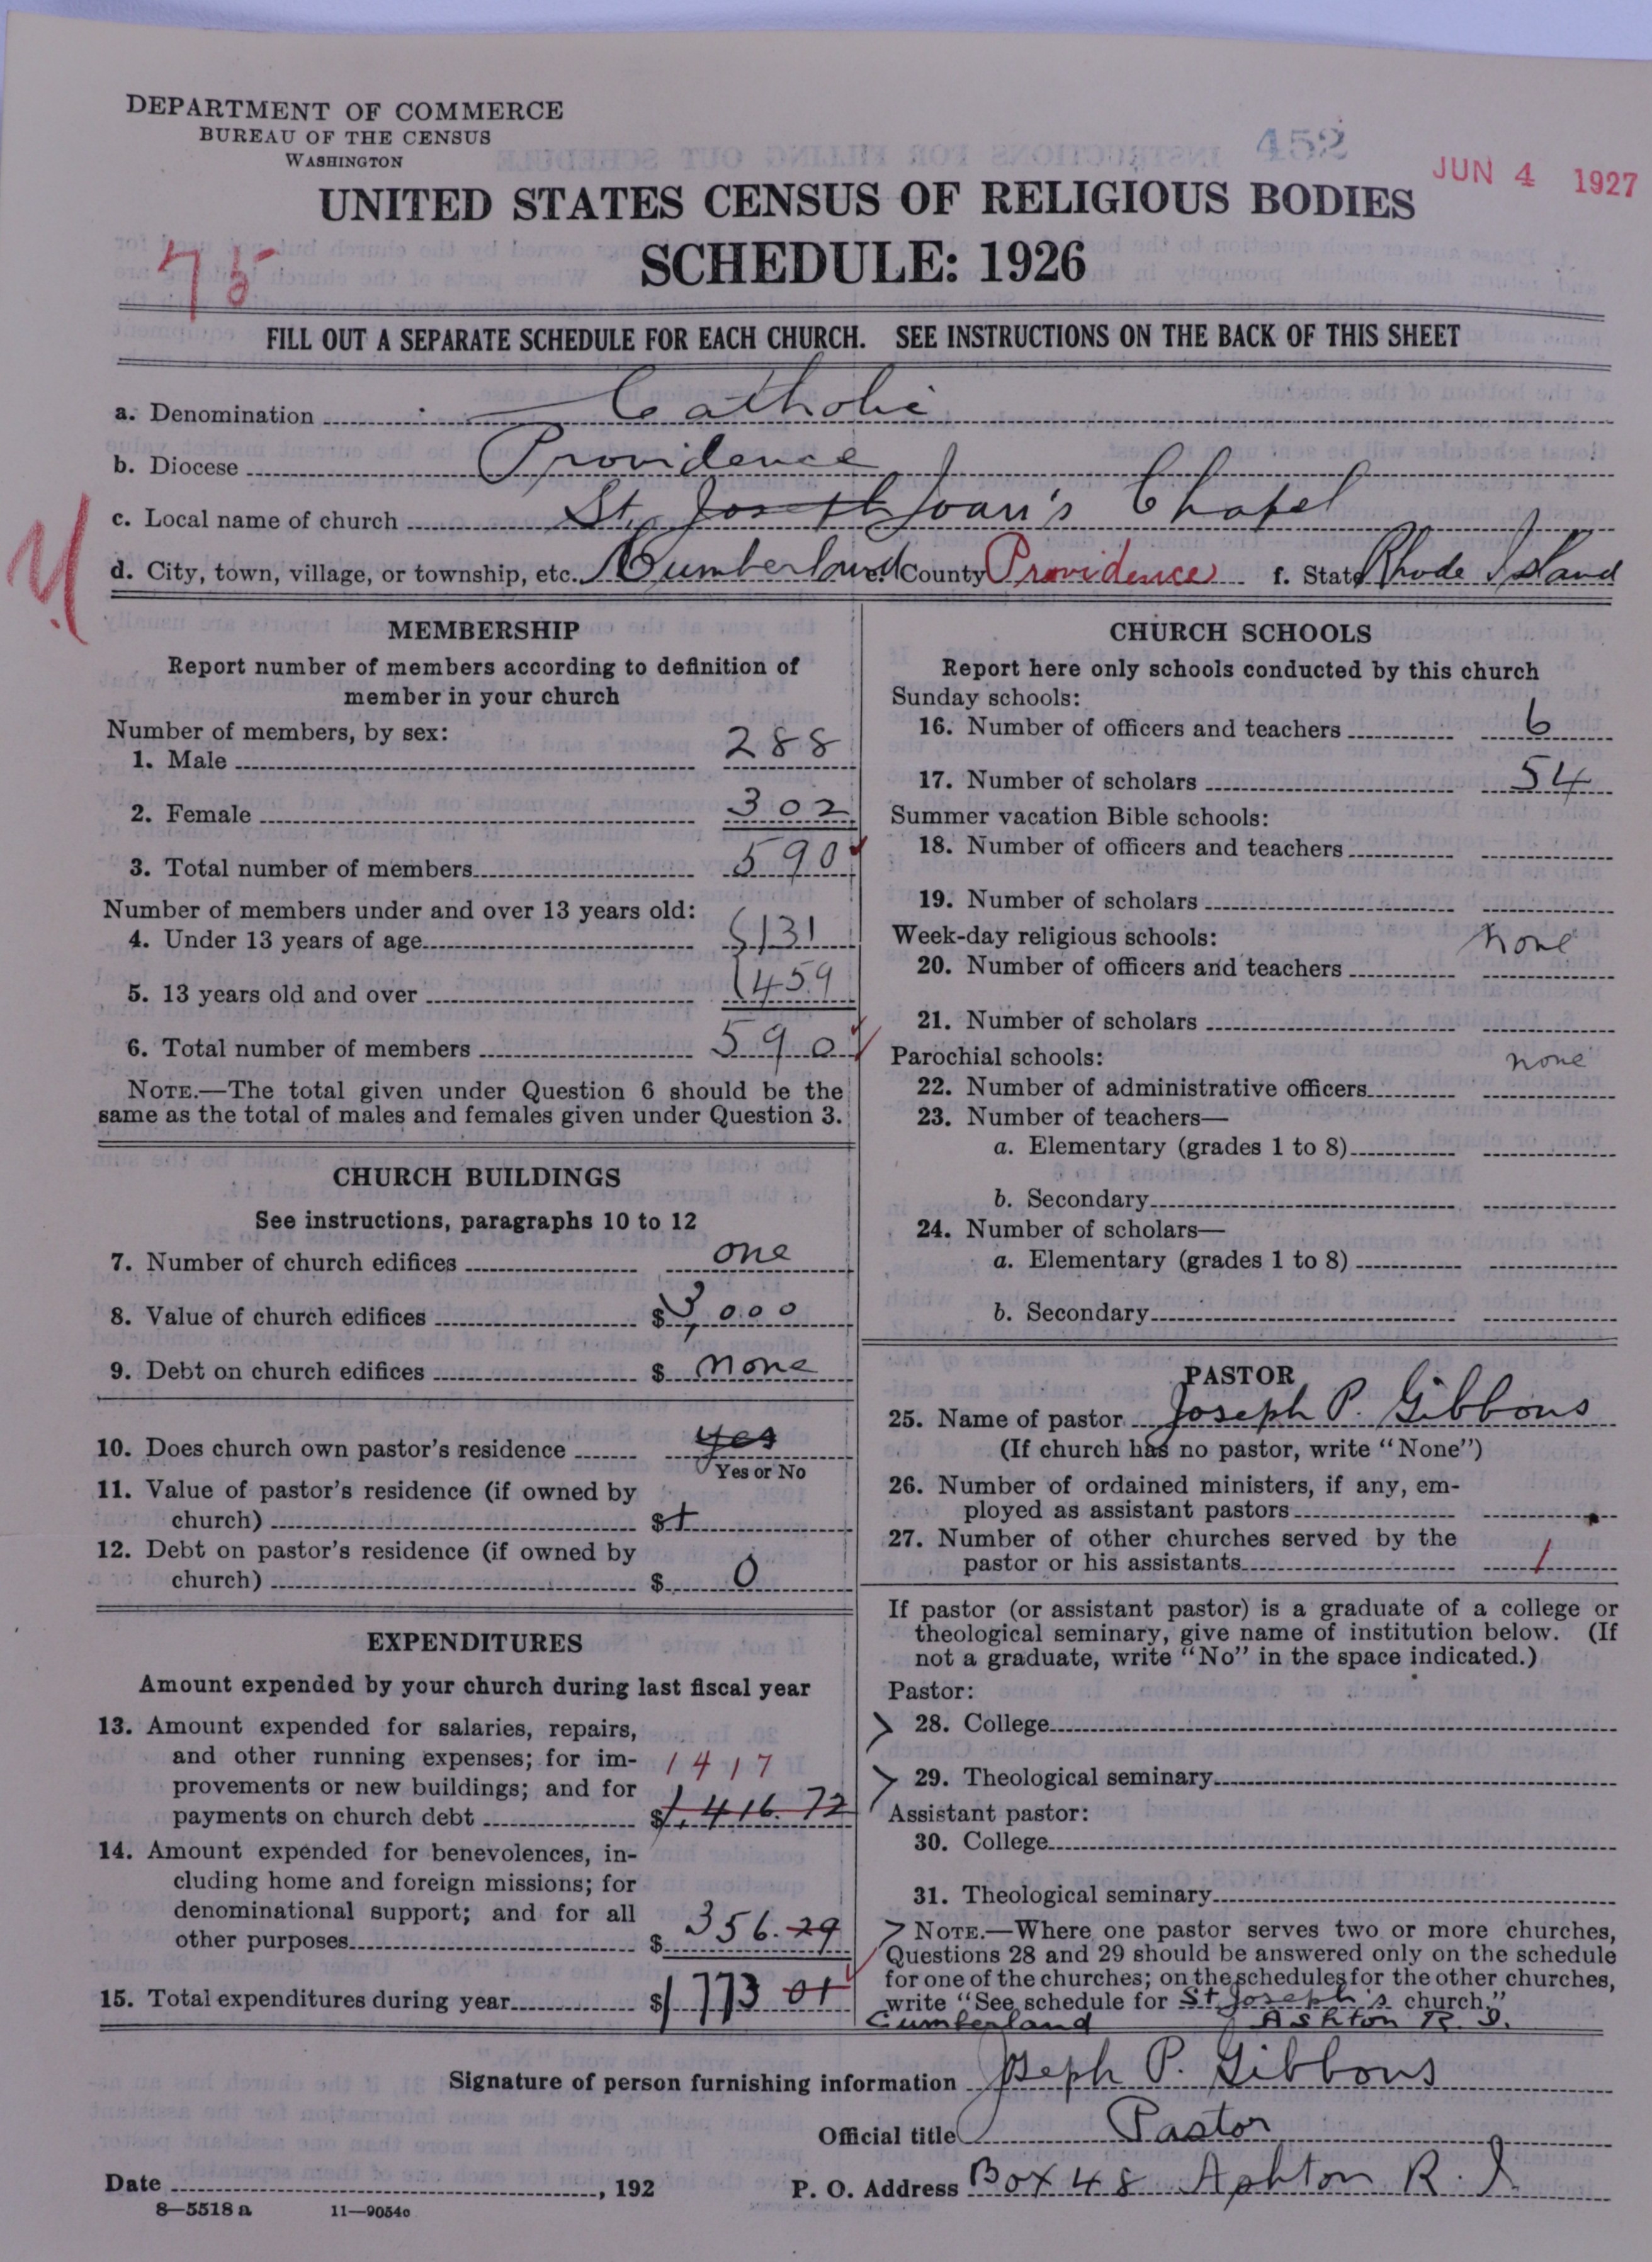 DEPARTMENT OF COMMERCE
BUREAU OF THE CENSUS
WASHINGTON
452
JUN 4 1927
UNITED STATES CENSUS OF RELIGIOUS BODIES
SCHEDULE: 1926
75
FILL OUT A SEPARATE SCHEDULE FOR EACH CHURCH. SEE INSTRUCTIONS ON THE BACK OF THIS SHEET
a. Denomination Catholic
b. Diocese Providence
c. Local name of church St. Joseph Joan's Chapel
d. City, town, village, or township, etc. Cumberland e. County Providence f. State Rhode Island
MEMBERSHIP
Report number of members according to definition of
member in your church
Number of members, by sex:
1. Male 288
2. Female 302
3. Total number of members 590
Number of members under and over 13 years old:
4. Under 13 years of age 131
5. 13 years old and over 459
6. Total number of members 590
NOTE.—The total given under Question 6 should be the
same as the total of males and females given under Question 3.
CHURCH BUILDINGS
See instructions, paragraphs 10 to 12
7. Number of church edifices one
8. Value of church edifices $3,000
9. Debt on church edifices $ none
10. Does church own pastor's residence yes
Yes or No
11. Value of pastor's residence (if owned by
church) $ +
12. Debt on pastor's residence (if owned by
church) $ 0
EXPENDITURES
Amount expended by your church during last fiscal year
13. Amount expended for salaries, repairs,
and other running expenses; for im- 1417
provements or new buildings; and for
payments on church debt $1,416.72
14. Amount expended for benevolences, in-
cluding home and foreign missions; for
denominational support; and for all
other purposes $ 356.29
15. Total expenditures during year $1773 01
CHURCH SCHOOLS
Report here only schools conducted by this church
Sunday schools:
16. Number of officers and teachers 6
17. Number of scholars 54
Summer vacation Bible schools:
18. Number of officers and teachers
19. Number of scholars
Week-day religious schools: none
20. Number of officers and teachers
21. Number of scholars
Parochial schools: none
22. Number of administrative officers
23. Number of teachers—
a. Elementary (grades 1 to 8)
b. Secondary
24. Number of scholars—
a. Elementary (grades 1 to 8)
b. Secondary
PASTOR
25. Name of pastor Joseph P. Gibbons
(If church has no pastor, write "None")
26. Number of ordained ministers, if any, em-
ployed as assistant pastors
27. Number of other churches served by the
pastor or his assistants 1
If pastor (or assistant pastor) is a graduate of a college or
theological seminary, give name of institution below. (If
not a graduate, write "No" in the space indicated.)
Pastor:
> 28. College
> 29. Theological seminary
Assistant pastor:
30. College
31. Theological seminary
> NOTE.—Where one pastor serves two or more churches,
Questions 28 and 29 should be answered only on the schedule
for one of the churches; on the schedules for the other churches,
write "See schedule for St Joseph's church."
Cumberland Ashton R. I.
Signature of person furnishing information Joseph P. Gibbons
Official title Pastor
Date , 192
P. O. Address Box 48 Ashton R. I.
8—5518 a 11—9054c